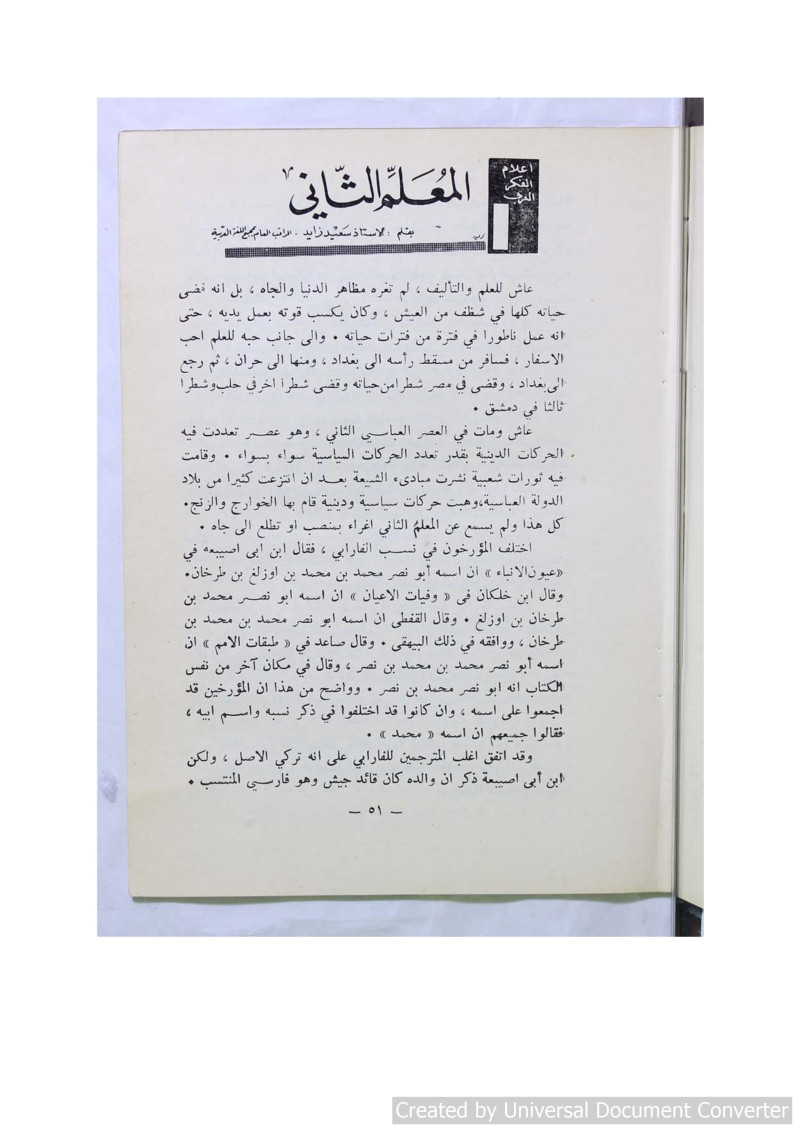 اعلام
الفكر
العربي
المُعَلِّم الثّاني
بقلم : الاستاذ سَعيد زايد - المراقب العام بمجمع اللغة العربية
عاش للعلم والتأليف ، لم تغره مظاهر الدنيا والجاه ، بل انه قضى
حياته كلها في شظف من العيش ، وكان يكسب قوته بعمل يديه ، حتى
انه عمل ناطورا في فترة من فترات حياته ٠ والى جانب حبه للعلم احب
الاسفار ، فسافر من مسقط رأسه الى بغداد ، ومنها الى حران ، ثم رجع
الى بغداد ، وقضى في مصر شطرا من حياته وقضى شطرا اخر في حلب وشطرا
ثالثا في دمشق ٠
عاش ومات في العصر العباسي الثاني ، وهو عصر تعددت فيه
الحركات الدينية بقدر تعدد الحركات السياسية سواء بسواء ٠ وقامت
فيه ثورات شعبية نشرت مبادىء الشيعة بعد ان انتزعت كثيرا من بلاد
الدولة العباسية،وهبت حركات سياسية ودينية قام بها الخوارج والزنج٠
كل هذا ولم يسمع عن المعلم الثاني اغراء بمنصب او تطلع الى جاه ٠
اختلف المؤرخون في نسب الفارابي ، فقال ابن ابى اصيبعه في
«عيون الانباء » ان اسمه أبو نصر محمد بن محمد بن اوزلغ بن طرخان٠
وقال ابن خلكان فى « وفيات الاعيان » ان اسمه ابو نصر محمد بن
طرخان بن اوزلغ ٠ وقال القفطى ان اسمه ابو نصر محمد بن محمد بن
طرخان ، ووافقه في ذلك البيهقى ٠ وقال صاعد في « طبقات الامم » ان
اسمه أبو نصر محمد بن محمد بن نصر ، وقال في مكان آخر من نفس
الكتاب انه ابو نصر محمد بن نصر ٠ وواضح من هذا ان المؤرخين قد
اجمعوا على اسمه ، وان كانوا قد اختلفوا في ذكر نسبه واسم ابيه ،
فقالوا جميعهم ان اسمه « محمد » ٠
وقد اتفق اغلب المترجمين للفارابي على انه تركي الاصل ، ولكن
ابن أبى اصيبعة ذكر ان والده كان قائد جيش وهو فارسي المنتسب ٠
— ٥١ —
Created by Universal Document Converter